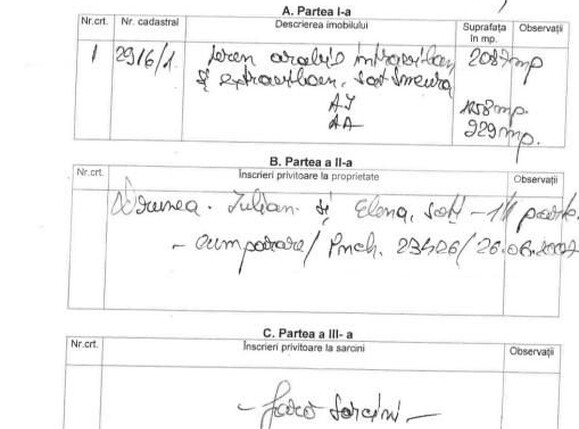 A. Partea I-a
Nr.crt. Nr. cadastral Descrierea imobilului Suprafața în mp. Observații
1 2916/1 teren arabil intravilan 2087mp
și extravilan, sat Smeura
AI 1158mp.
AA 929mp.
B. Partea a II-a
Nr.crt. Înscrieri privitoare la proprietate Observații
Iulian și Elena, soți - 1/1 parte.
- cumparare / 23426/26.06.2007
C. Partea a III- a
Nr.crt. Înscrieri privitoare la sarcini Observații
- fara sarcini -